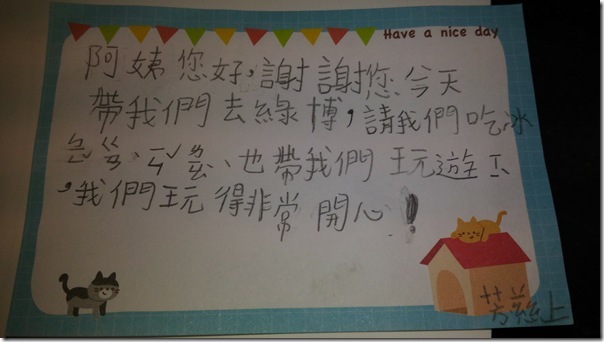 Have a nice day
阿姨您好,謝謝您今天
帶我們去綠博,請我們吃冰
、也帶我們玩遊
,我們玩得非常開心!
芳上